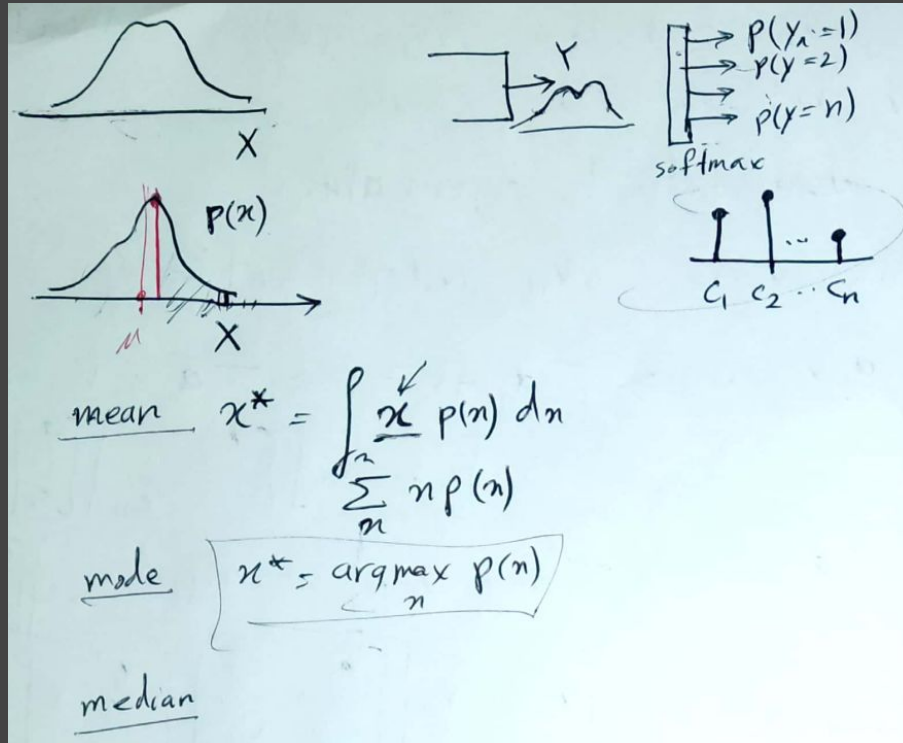 X
Y
p(y=1)
p(y=2)
p(y=n)
softmax
p(x)
μ
X
C₁ C₂ .. Cₙ
mean x* = ∫ₓ x p(x) dx
∑ₓ x p(x)
mode x* = argmaxₓ p(x)
median